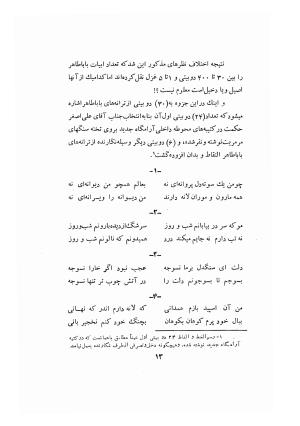 نتیجه اختلاف نظرهای مذکور این شد که تعداد ابیات باباطاهر
را بین ۳۰ تا ۴۰۰ دوبیتی و ۱ تا ۵ غزل نقل کرده‌اند اما کدامیک از آنها
اصیل و یا دخیل است معلوم نیست ؟!
و اینک در این جزوه به (۳۰) دوبیتی از ترانه‌های باباطاهر اشاره
میشود که تعداد (۲۴) دوبیتی اول آن بنا به انتخاب جناب آقای علی اصغر
حکمت در کتیبه‌های محوطه داخلی آرامگاه جدید بر روی تخته سنگهای
مرمریت نوشته و نقر شده، و (۶) دوبیتی دیگر وسیله نگارنده از ترانه‌های
باباطاهر التقاط و بدان افزوده گشت¹.
-۱-
چو من یك سوته‌دل پروانه‌ای نه بعالم همچو من دیوانه‌ای نه
همه مارون و موران لانه دارند من دیوانه را ویرانه‌ای نه
-۲-
مو که سر در بیابانم شب و روز سرشگ از دیده بارونم شب و روز
نه تب دارم نه جایم میکند درد همیدونم که نالونم شب و روز
-۳-
دلت ای سنگدل بر ما نسوجه عجب نبود اگر خارا نسوجه
بسوجم تا بسوجونم دلت را در آتش چوب تر تنها نسوجه
-۴-
من آن اسپید بازم همدانی که لانه دارم اندر که نهانی
ببال خود پرم کوهان بکوهان بچنگ خود کنم نخجیر بانی
۱- رسم‌الخط و الفاظ ۲۴ دو بیتی اول عیناً مطابق با عباراتست که در کتیبه
آرامگاه جدید نوشته شده، و هیچگونه دخل و تصرفی از طرف نگارنده بعمل نیامد.
۱۳